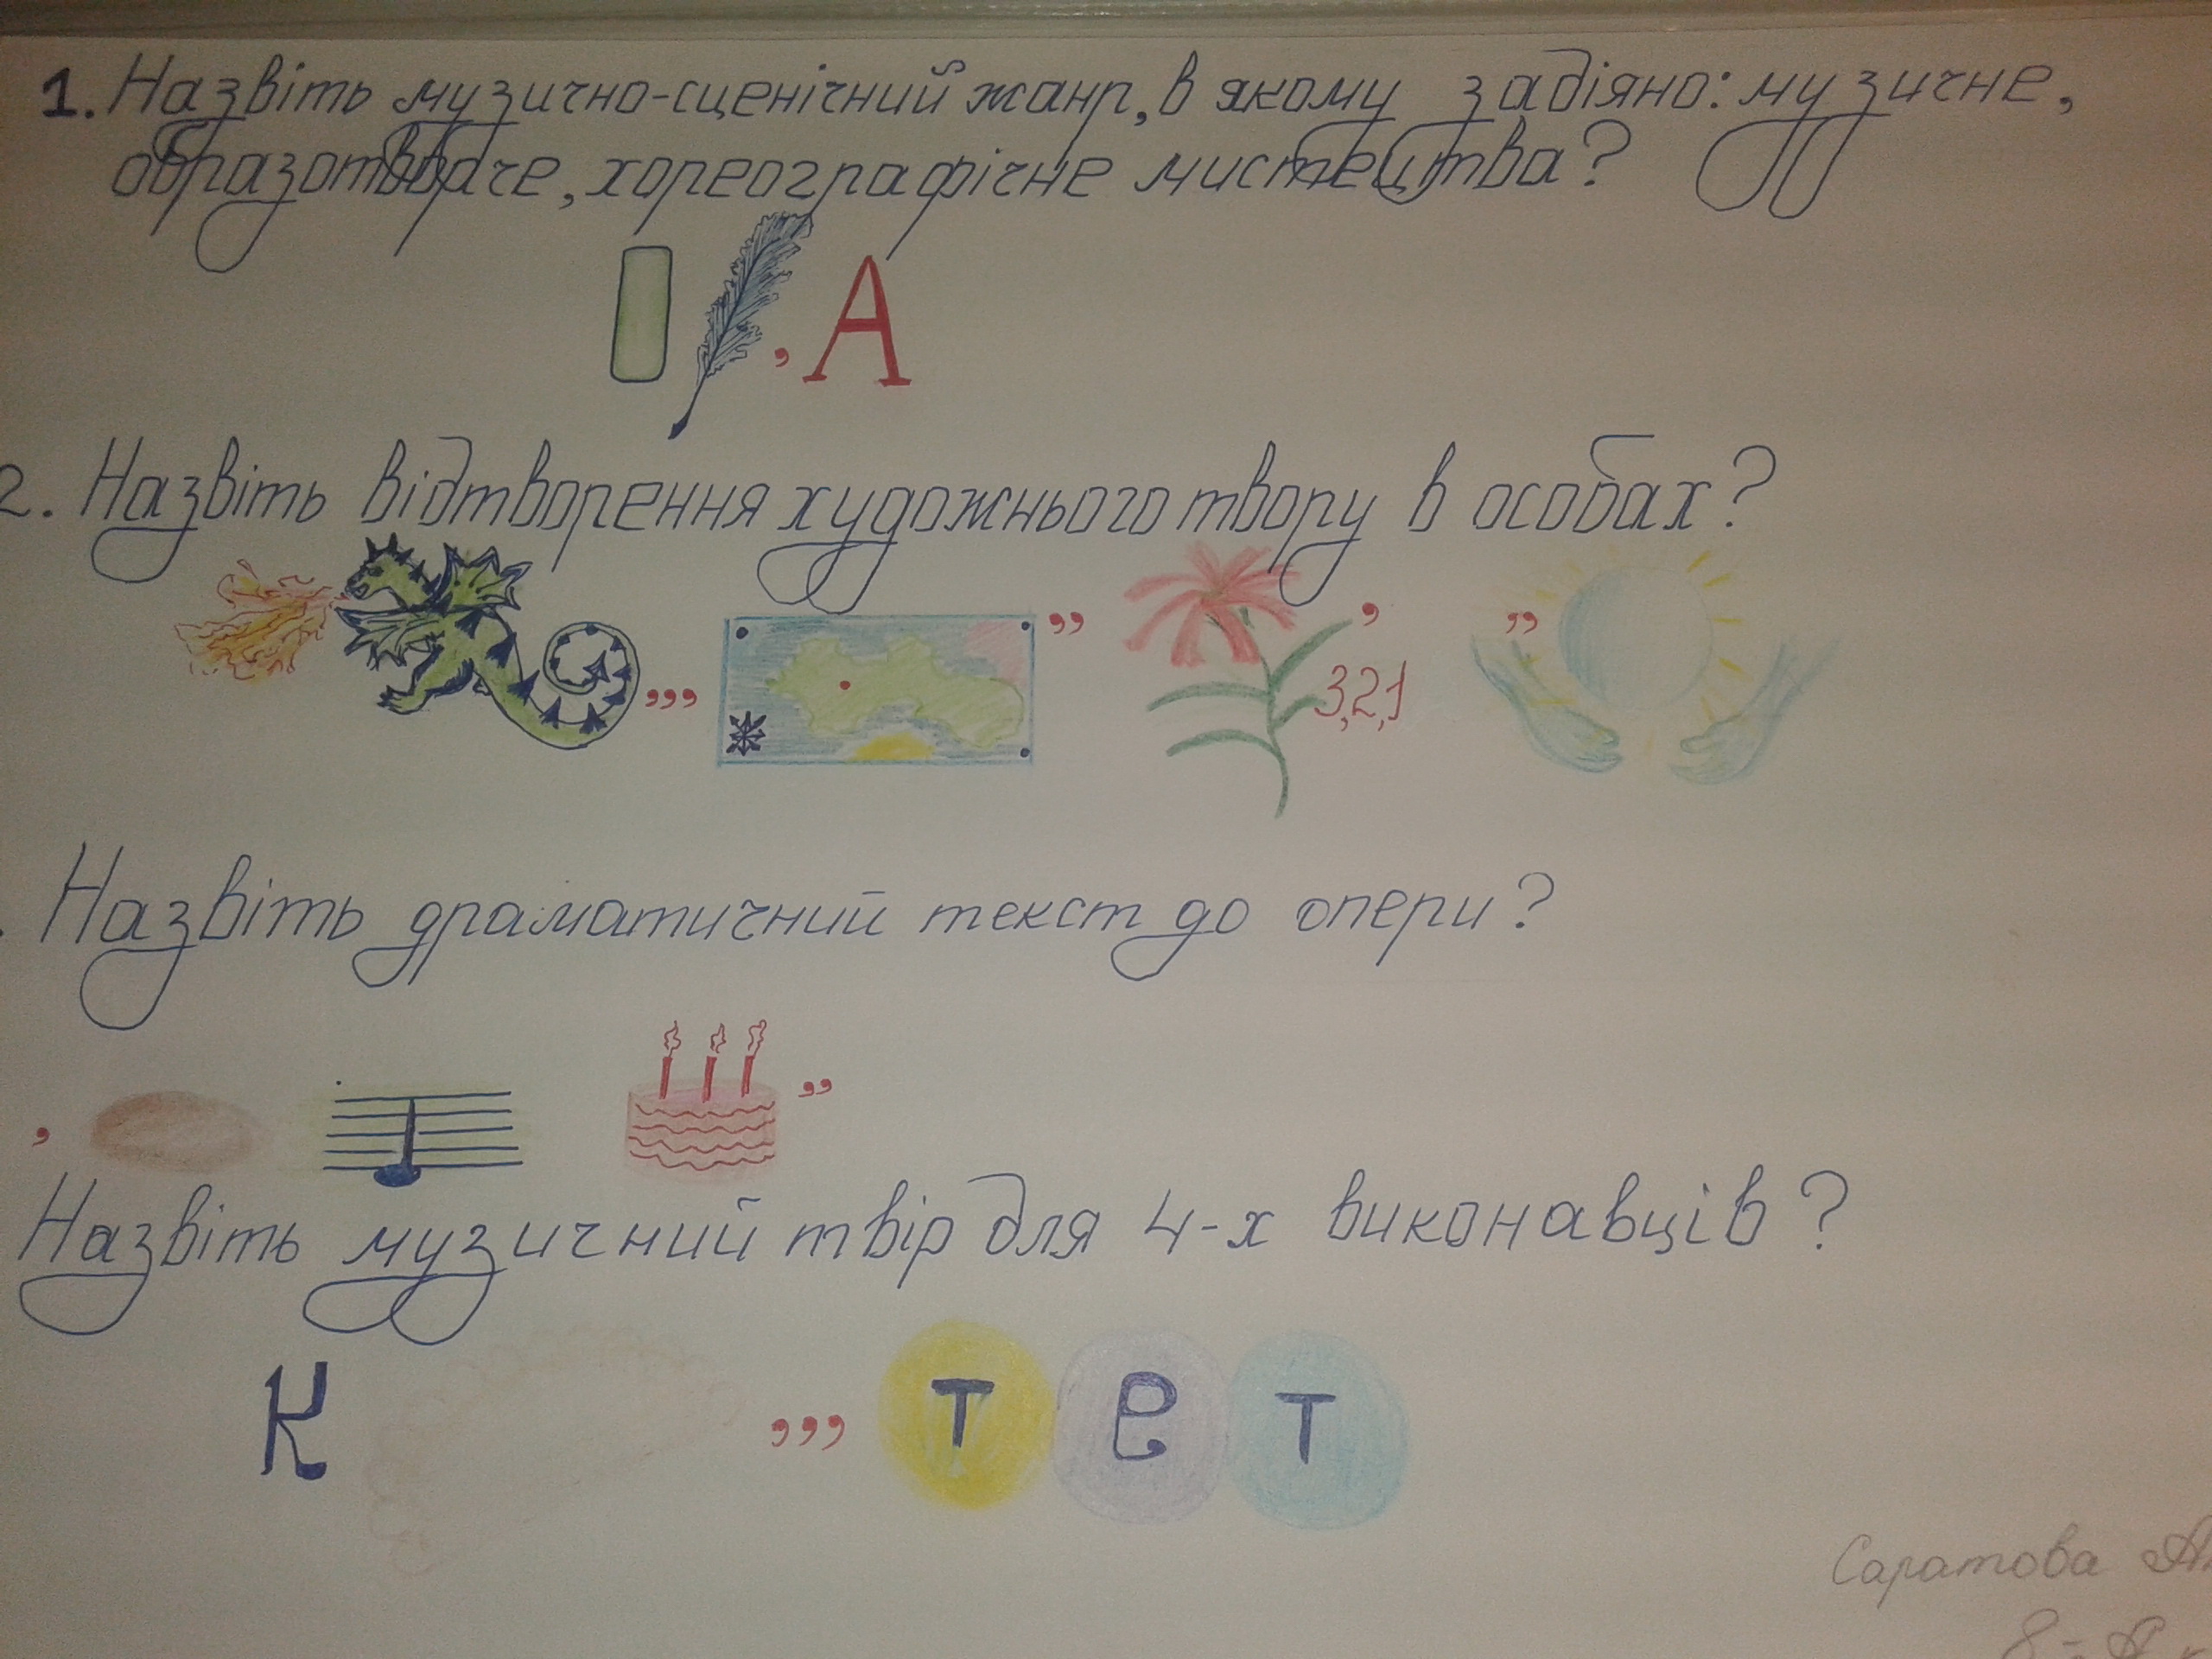 1. Назвіть музично-сценічний жанр, в якому задіяно: музичне,
образотворче, хореографічне мистецтва?
, А
2. Назвіть відтворення художнього твору в особах?
,,, ,, , 3,2,1 ,,
. Назвіть драматичний текст до опери?
, ,,
Назвіть музичний твір для 4-х виконавців?
К ,,, т е т
Саратова
8-А